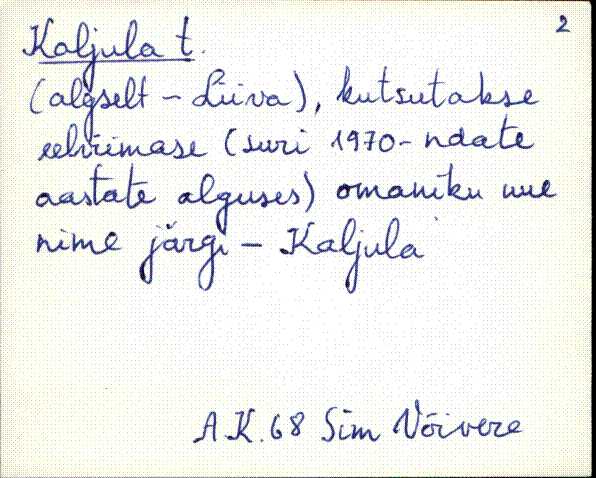 2
Kaljula t.
(algselt - Liiva), kutsutakse
eelviimase (suri 1970-ndate
aastate alguses) omaniku uue
nime järgi - Kaljula
A.K. 68 Sim Võivere